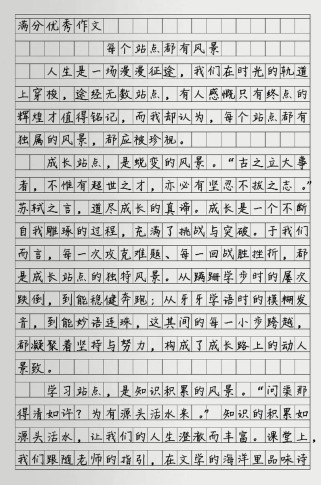 满分优秀作文
每个站点都有风景
人生是一场漫漫征途，我们在时光的轨道
上穿梭，途经无数站点，有人感慨只有终点的
辉煌才值得铭记，而我却认为，每个站点都有
独属的风景，都应被珍视。
成长站点，是蜕变的风景。“古之立大事
者，不惟有超世之才，亦必有坚忍不拔之志。”
苏轼之言，道尽成长的真谛。成长是一个不断
自我雕琢的过程，充满了挑战与突破。于我们
而言，每一次攻克难题、每一回战胜挫折，都
是成长站点的独特风景。从蹒跚学步时的屡次
跌倒，到能稳健奔跑；从牙牙学语时的模糊发
音，到能妙语连珠，这其间的每一小步跨越，
都凝聚着坚持与努力，构成了成长路上的动人
景致。
学习站点，是知识积累的风景。“问渠那
得清如许？为有源头活水来。”知识的积累如
源头活水，让我们的人生澄澈而丰富。课堂上，
我们跟随老师的指引，在文学的海洋里品味诗